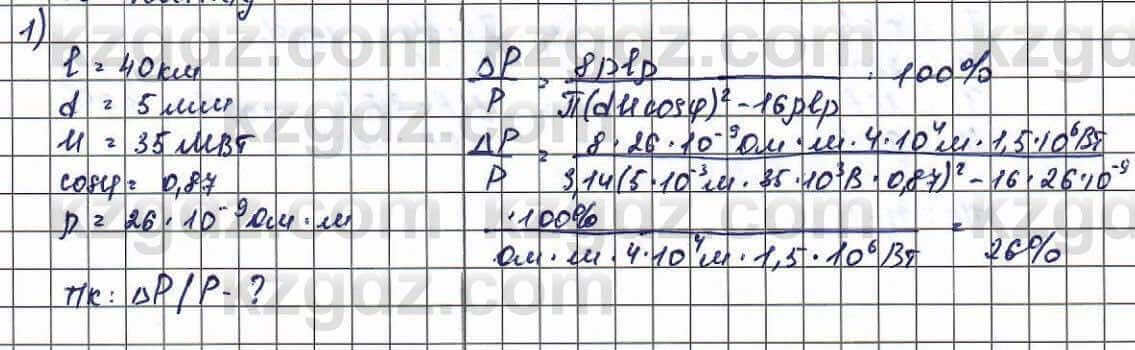 1)
l = 40 км
d = 5 мм
U = 35 МВт
cosφ = 0,87
ρ = 26 · 10⁻⁹ Ом · м
Тк: ΔP/P - ?
ΔP/P = 8ρlp / П(dUcosφ)² - 16ρlp · 100%
ΔP/P = 8 · 26 · 10⁻⁹ Ом · м · 4 · 10⁴ м · 1,5 · 10⁶ Вт / 3,14(5 · 10⁻³ м · 35 · 10³ В · 0,87)² - 16 · 26 · 10⁻⁹
· 100% / Ом · м · 4 · 10⁴ м · 1,5 · 10⁶ Вт = 26%
kzgdz.com